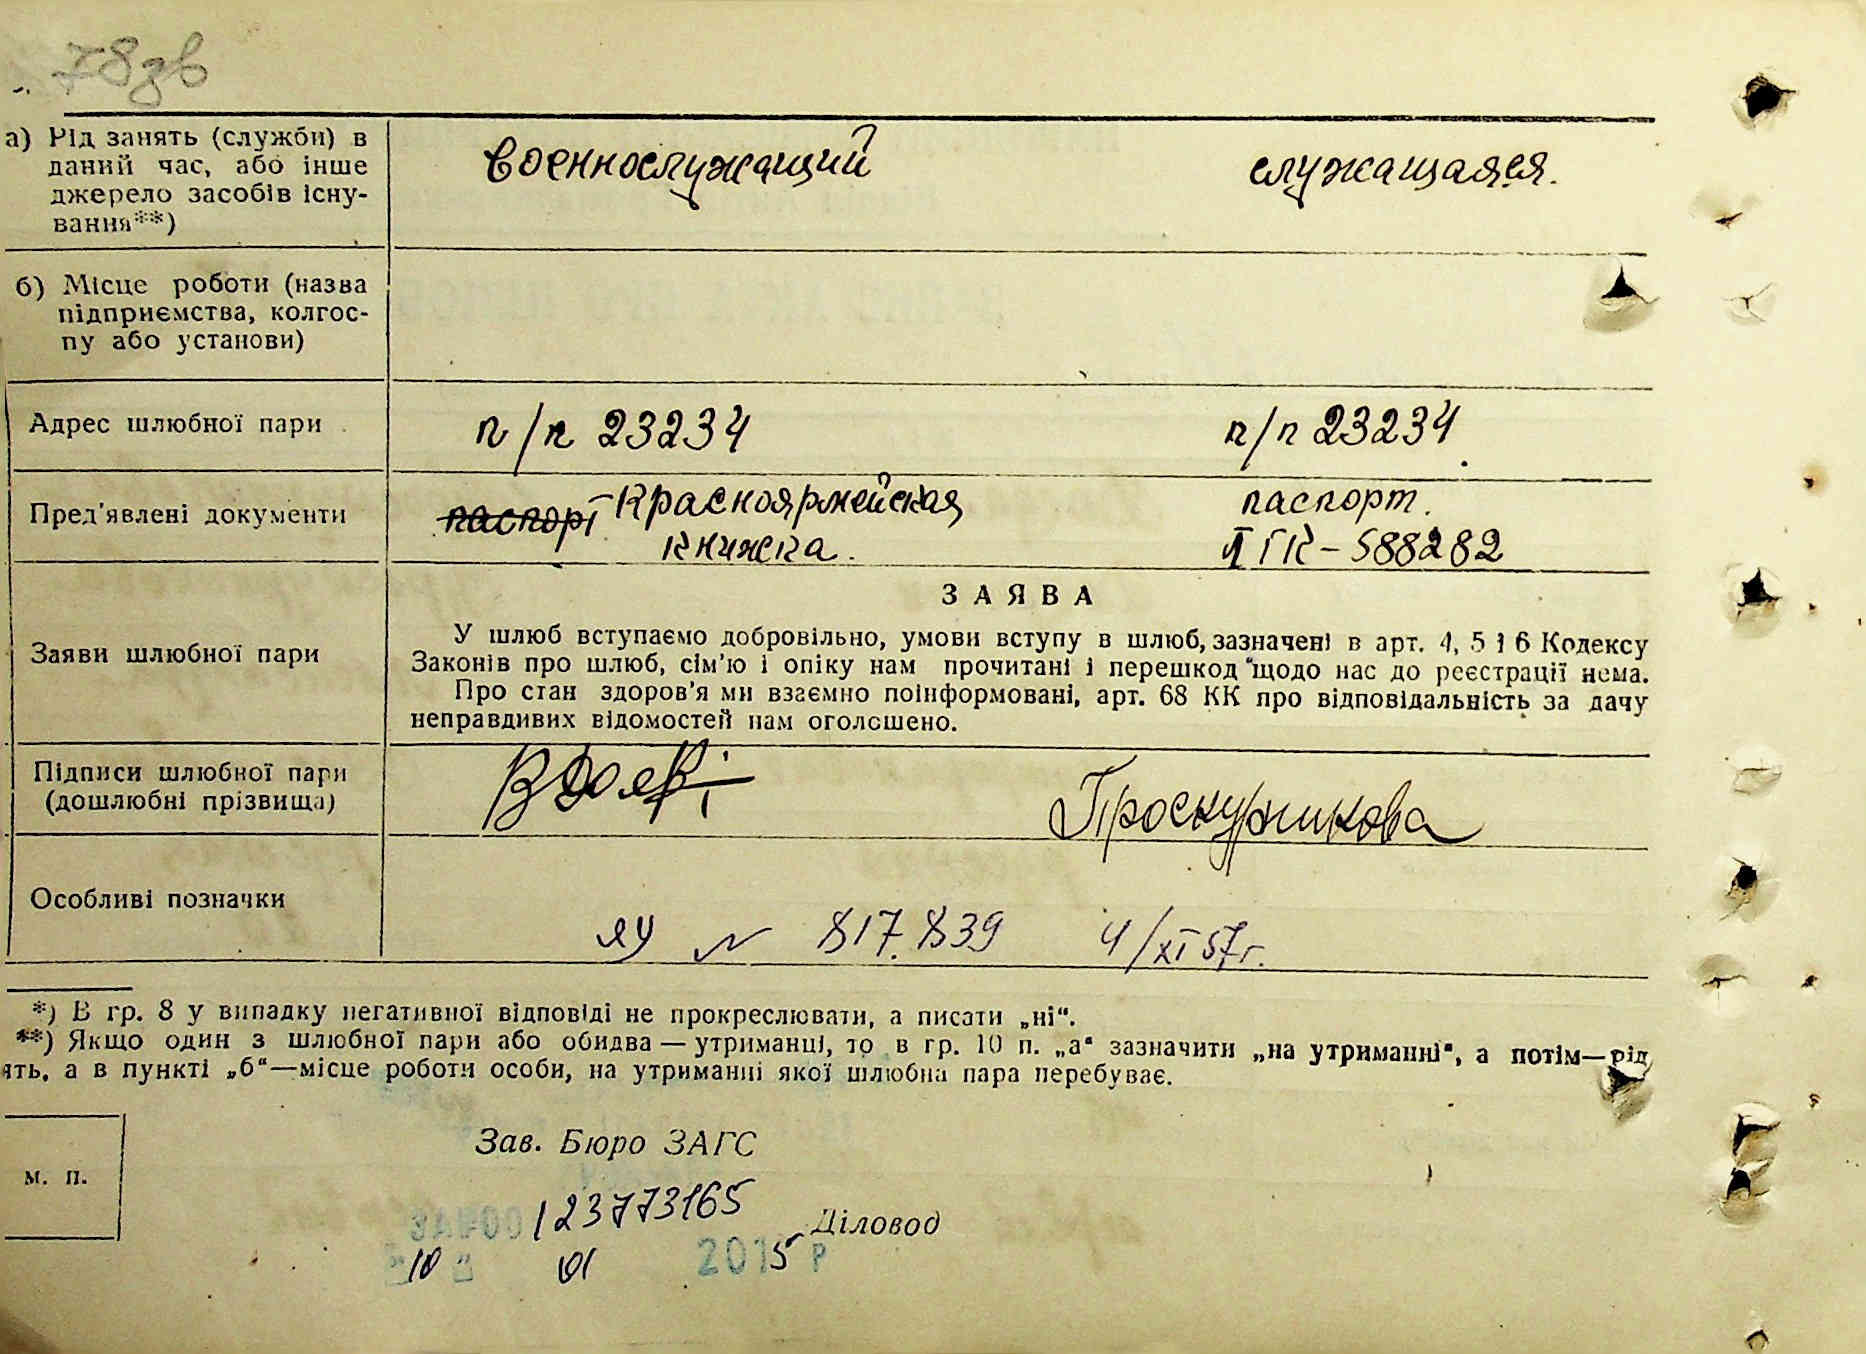 78зв
а) Рід занять (служби) в
даний час, або інше
джерело засобів існу-
вання**)
военнослужащий служащаяся.
б) Місце роботи (назва
підприємства, колгос-
пу або установи)
Адрес шлюбної пари
п/п 23234 п/п 23234
Пред'явлені документи
паспорт Красноярмейская паспорт.
книжка. ГК-588282
ЗАЯВА
Заяви шлюбної пари
У шлюб вступаємо добровільно, умови вступу в шлюб, зазначені в арт. 4, 5 і 6 Кодексу
Законів про шлюб, сім'ю і опіку нам прочитані і перешкод щодо нас до реєстрації нема.
Про стан здоров'я ми взаємно поінформовані, арт. 68 КК про відповідальність за дачу
неправдивих відомостей нам оголошено.
Підписи шлюбної пари
(дошлюбні прізвища)
Проскурникова
Особливі позначки
ЯУ № 817.839 4/XI 57г.
*) В гр. 8 у випадку негативної відповіді не прокреслювати, а писати „ні“.
**) Якщо один з шлюбної пари або обидва — утриманці, то в гр. 10 п. „а“ зазначити „на утриманні“, а потім—рід
ять, а в пункті „б“—місце роботи особи, на утриманні якої шлюбна пара перебуває.
м. п.
Зав. Бюро ЗАГС
123773165
Діловод
"10" 01 2015 р